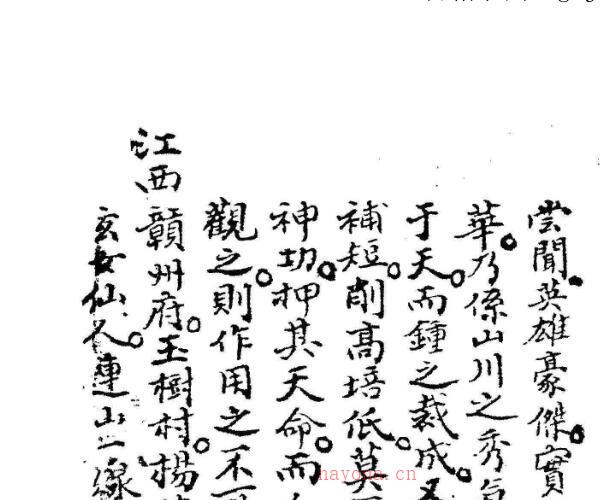 尝聞英雄豪傑實
華乃係山川之秀氣
于天而鍾之裁成
補短削高培低莫
神功。押其天命而
觀之則作用之不
江西贛州府玉樹村楊
玄女仙人連山二線
hayona.cn